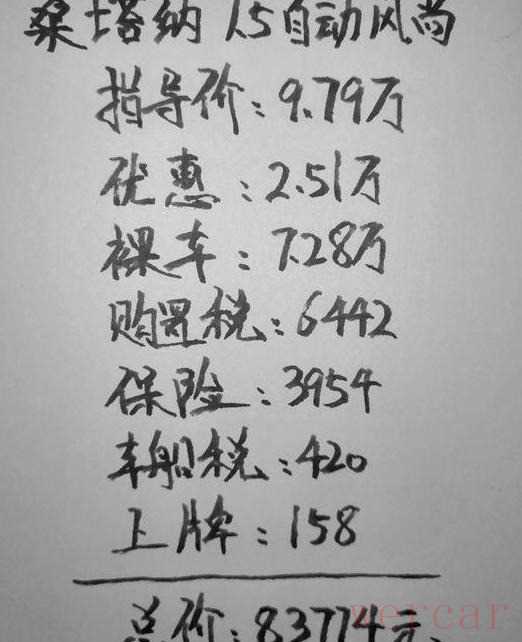 桑塔纳 1.5自动风尚
指导价：9.79万
优惠：2.51万
裸车：7.28万
购置税：6442
保险：3954
车船税：420
上牌：158
总价：83774元